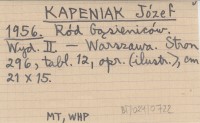 KAPENIAK Józef
1956. Ród Gąsieniców.
Wyd. II – Warszawa. Stron
296, tabl. 12, opr. (ilustr.), cm
21 x 15.
MT, WHP